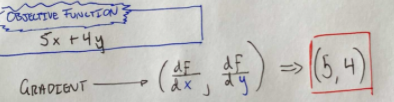 OBJECTIVE FUNCTION
5x + 4y
GRADIENT → (dF/dx, dF/dy) ⇒ (5, 4)